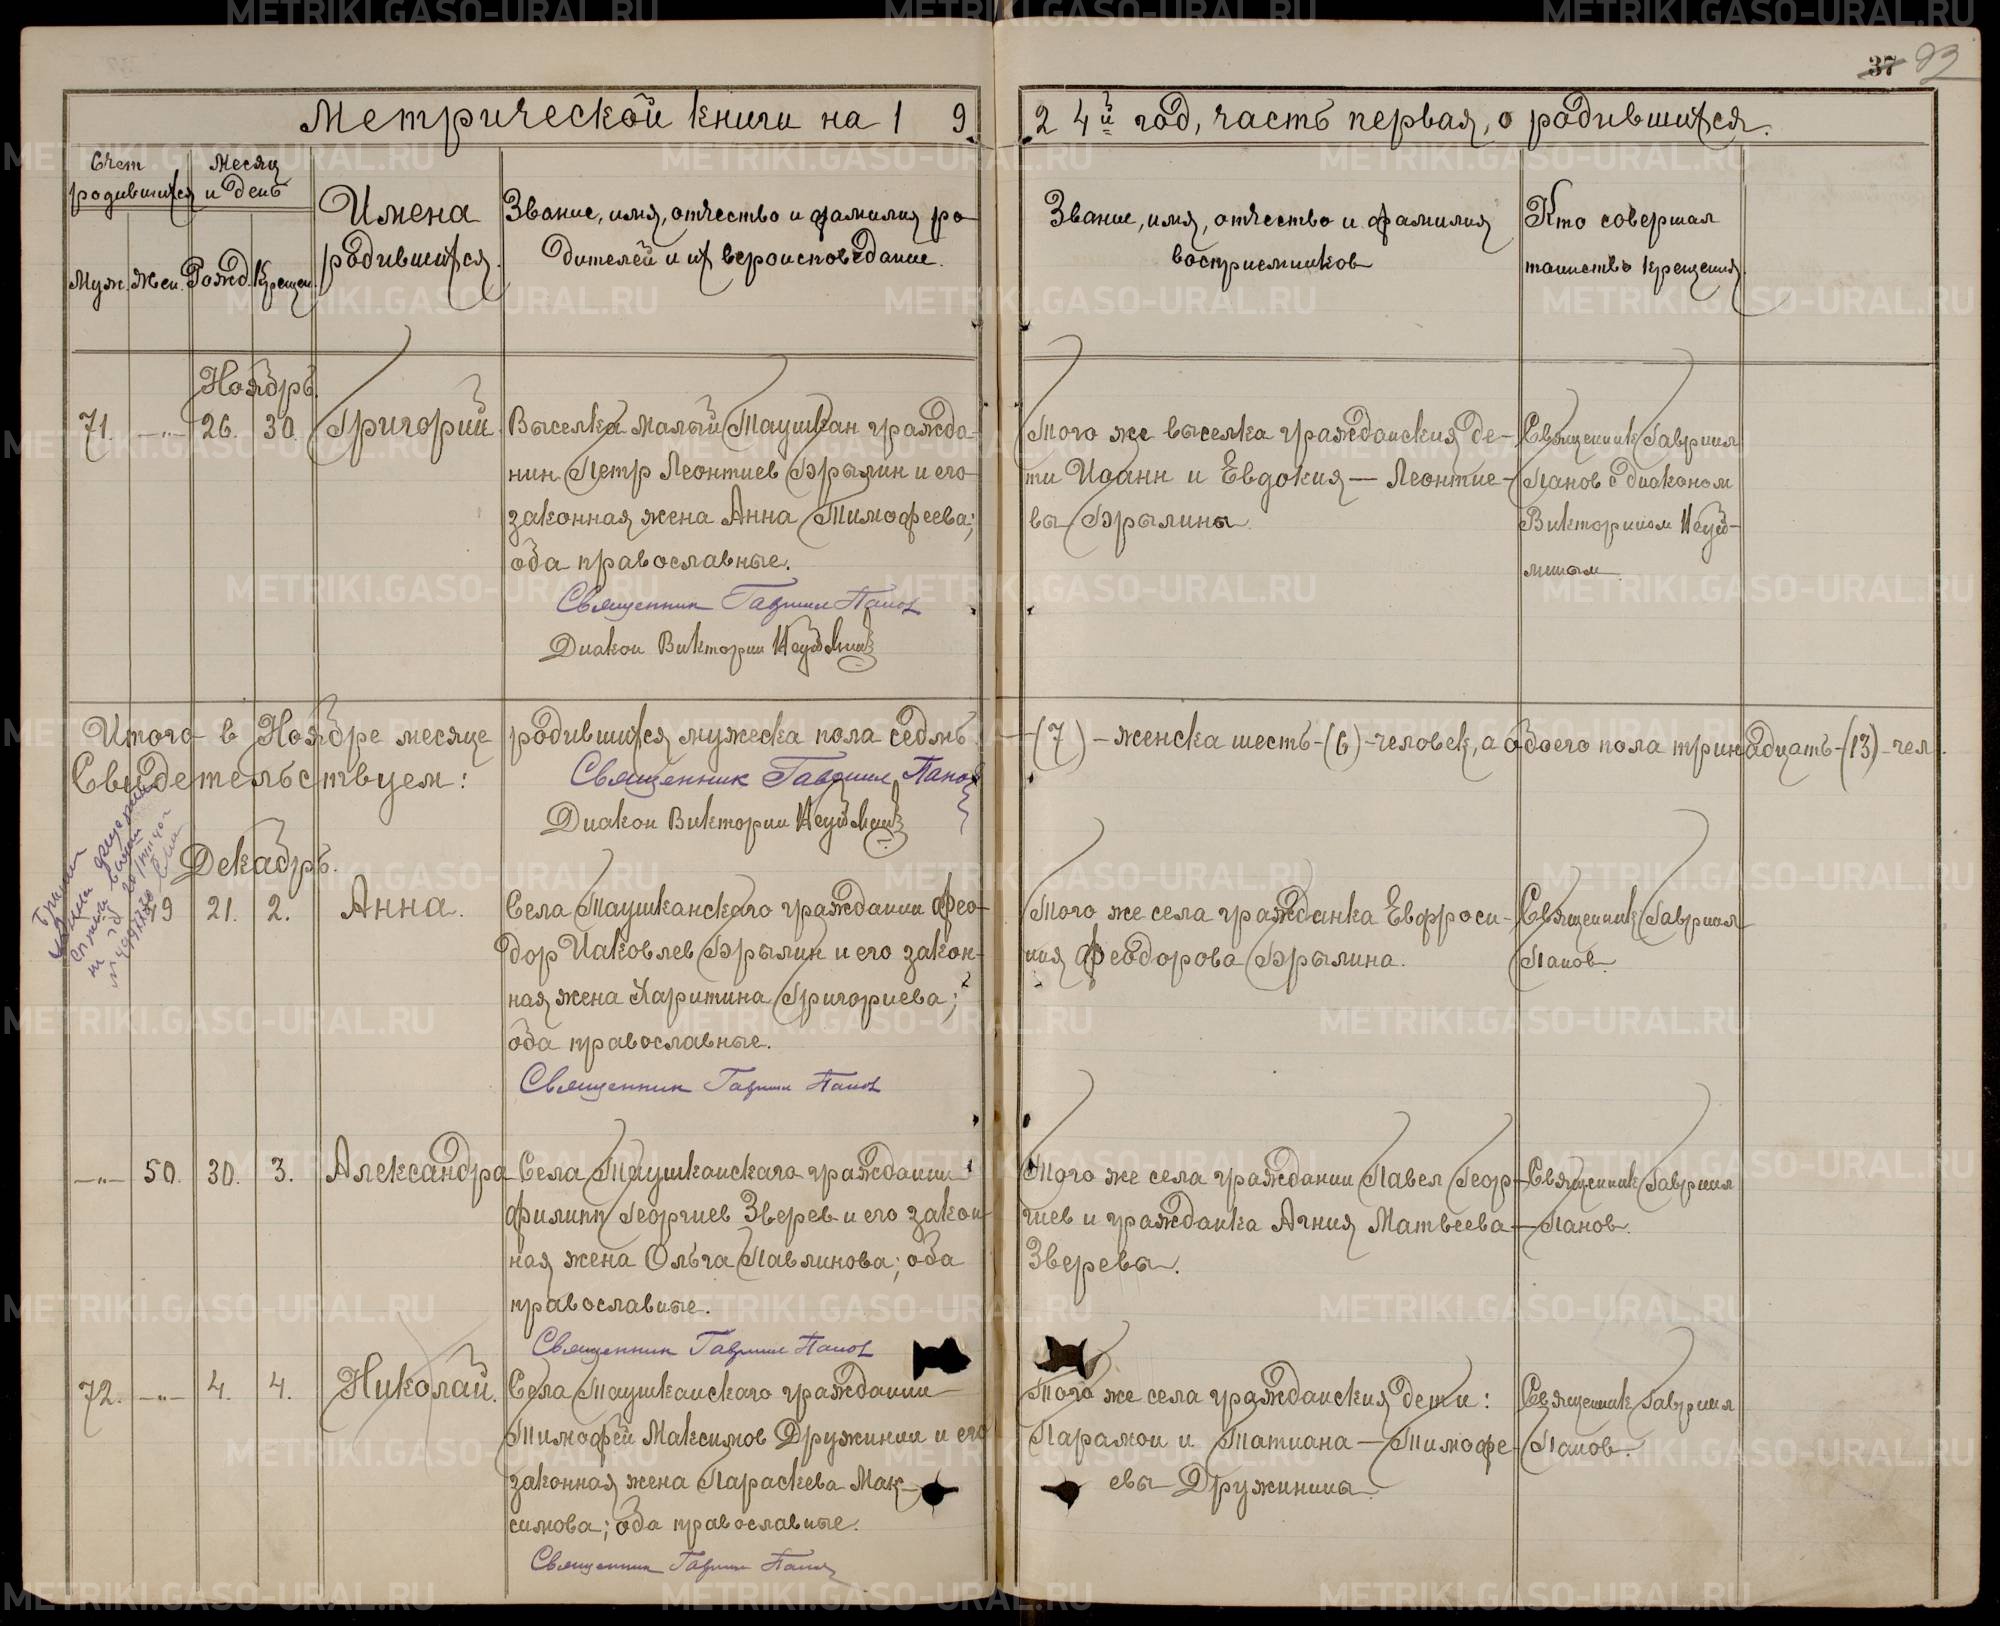 37 93
Метрической книги на 1 9
2 4й год, часть первая, о родившихся.
Счет родившихся
Месяц и день
Муж. Жен. Рожд. Крещен.
Имена
родившихся.
Звание, имя, отчество и фамилия ро-
дителей и их вероисповедание.
Звание, имя, отчество и фамилия
восприемников
Кто совершал
таинство крещения.
Ноябрь.
71. —"— 26. 30. Григорий.
Выселка Малый Таушкан гражда-
нин Петр Леонтиев Брылин и его
законная жена Анна Тимофеева;
оба православные.
Священник Гавриил Панов
Диакон Викторин
Того же выселка гражданския де-
ти Иоанн и Евдокия — Леонтие-
вы Брылины.
Священник Гавриил
Панов с диаконом
Викторином
Итого в Ноябре месяце родившихся мужеска пола седмь — (7) — женска шесть — (6) — человек, а обоего пола тринадцать — (13) — чел.
Свидетельствуем:
Священник Гавриил Панов
Диакон Викторин
Декабрь.
49 21. 2. Анна.
Села Таушканского гражданин Фео-
дор Иаковлев Брылин и его закон-
ная жена Харитина Григориева;
оба православные.
Священник Гавриил Панов
Того же села гражданка Евфроси-
ния Феодорова Брылина.
Священник Гавриил
Панов.
—"— 50. 30. 3. Александра
Села Таушканскаго гражданин
Филипп Георгиев Зверев и его закон-
ная жена Ольга Павлинова; оба
православные.
Священник Гавриил Панов
Того же села гражданин Павел Геор-
гиев и гражданка Агния Матвеева —
Зверевы.
Священник Гавриил
Панов.
72. —"— 4. 4. Николай.
Села Таушканскаго гражданин
Тимофей Максимов Дружинин и его
законная жена Параскева Мак-
симова; оба православные.
Священник Гавриил Панов
Того же села гражданския дети:
Парамон и Татиана — Тимофе-
евы Дружинины.
Священник Гавриил
Панов.
METRIKI.GASO-URAL.RU